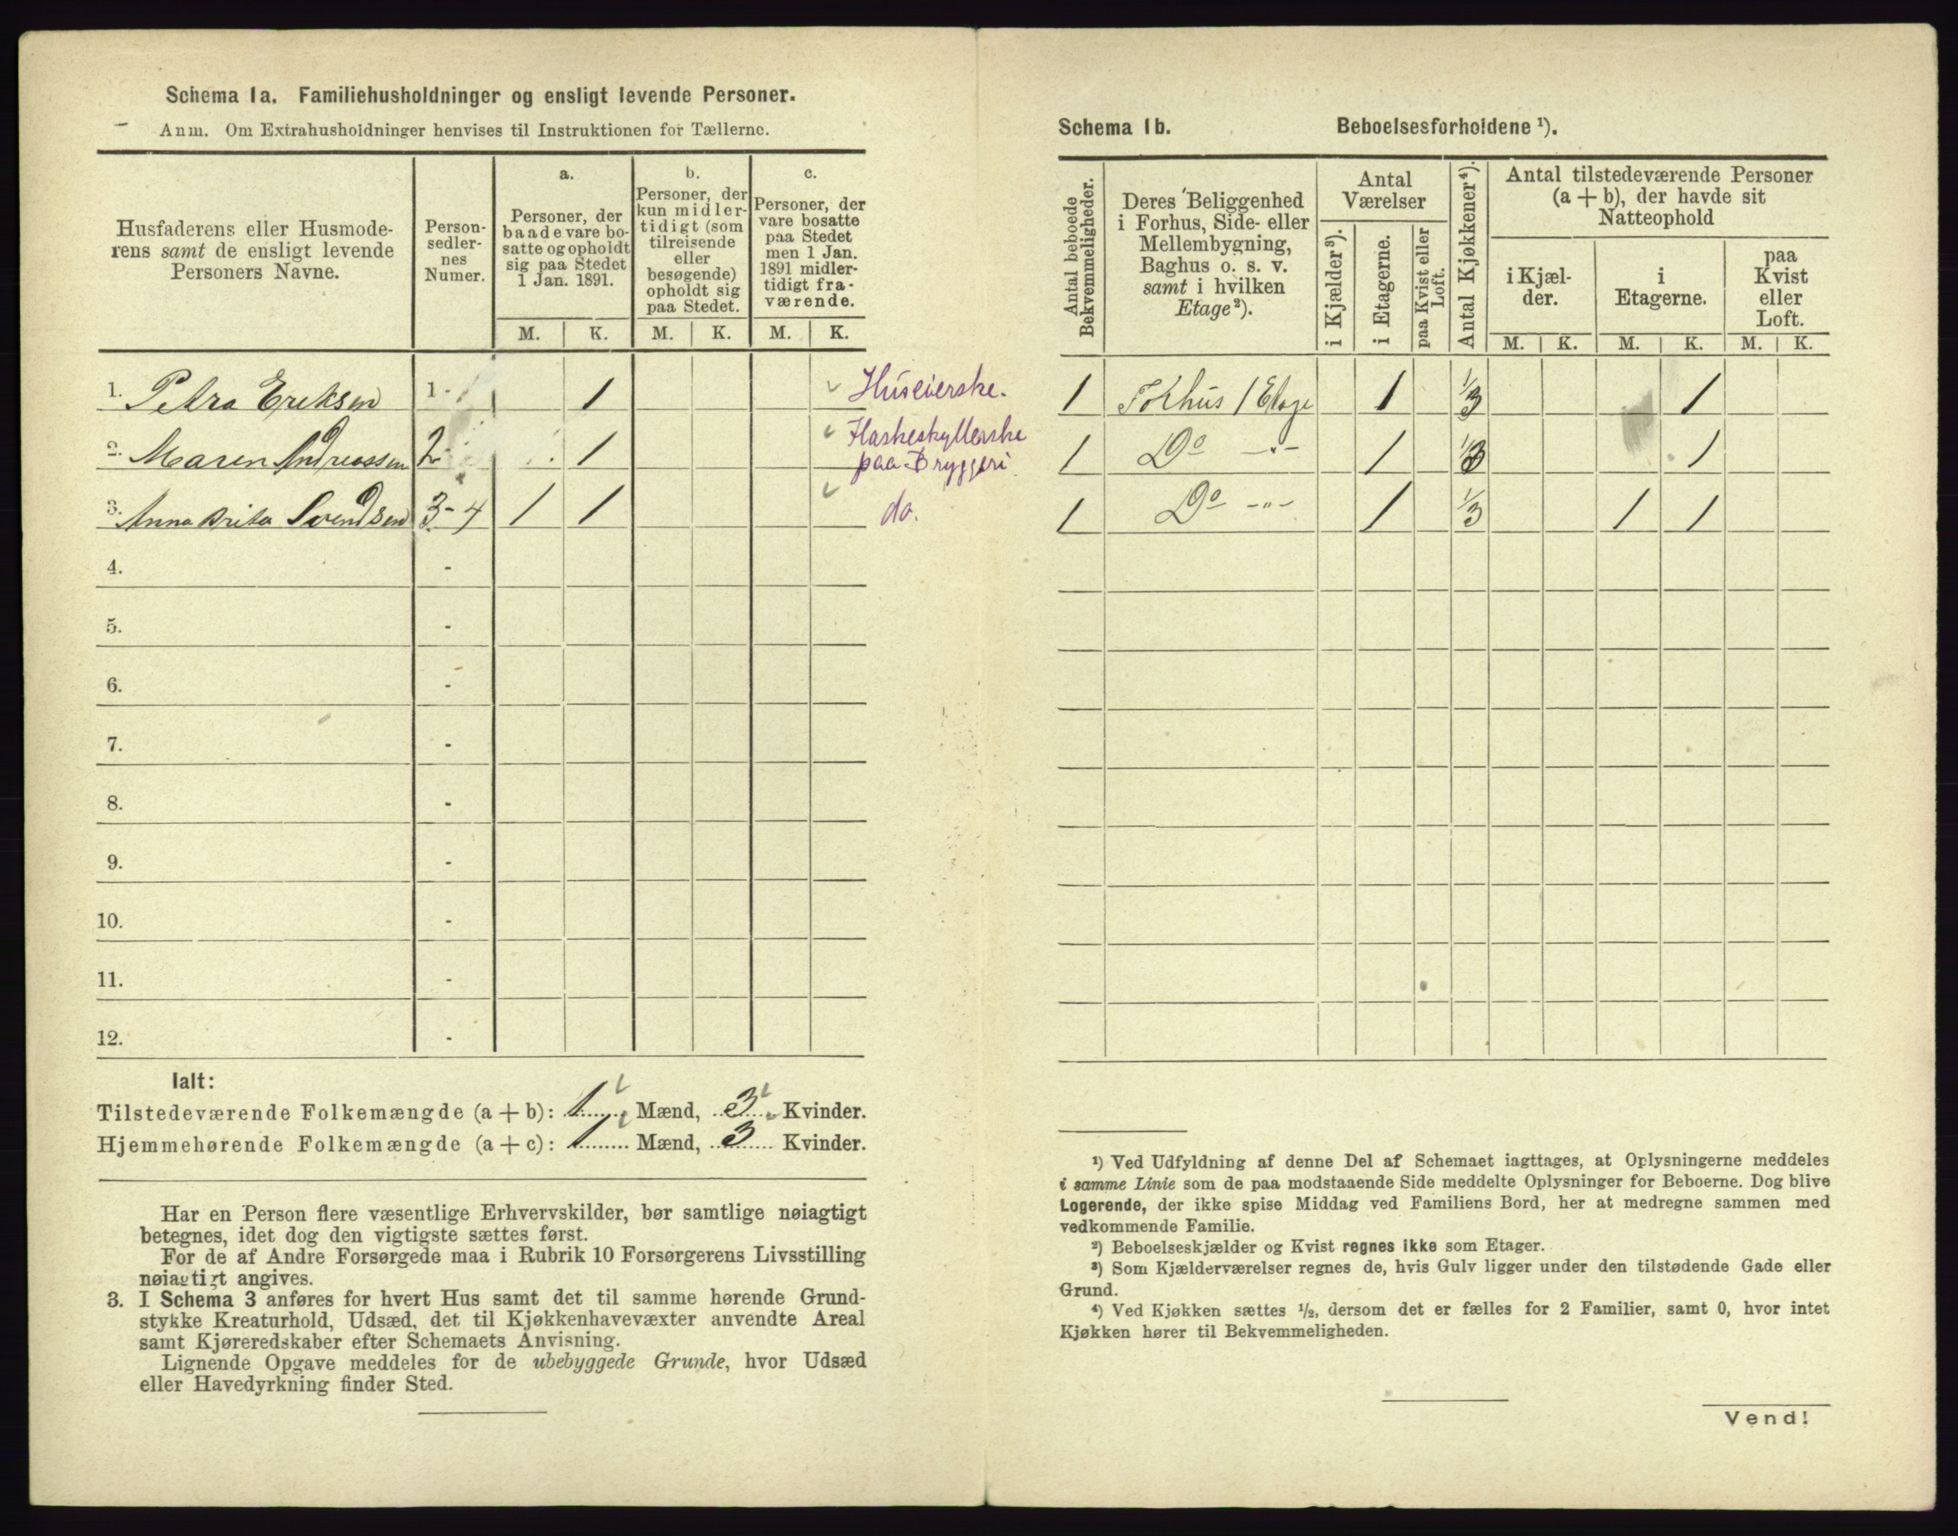 Schema 1a. Familiehusholdninger og ensligt levende Personer.
Anm. Om Extrahusholdninger henvises til Instruktionen for Tællerne.
Husfaderens eller Husmoderens samt de ensligt levende Personers Navne.
Personsedlernes Numer.
a.
Personer, der baade vare bosatte og opholdt sig paa Stedet 1 Jan. 1891.
b.
Personer, der kun midlertidigt (som tilreisende eller besøgende) opholdt sig paa Stedet.
c.
Personer, der vare bosatte paa Stedet men 1 Jan. 1891 midlertidigt fraværende.
M. K. M. K. M. K.
1. Petra Eriksen 1 - 1 1 Huseierske.
2. Maren Andreassen 2 - 1 Flaskeskyllerske
paa Bryggeri
3. Anna Brita Svendsen 3 - 4 1 1 do.
4. -
5. -
6. -
7. -
8. -
9. -
10. -
11. -
12. -
Ialt:
Tilstedeværende Folkemængde (a + b): 1 Mænd, 3 Kvinder.
Hjemmehørende Folkemængde (a + c): 1 Mænd, 3 Kvinder.
Har en Person flere væsentlige Erhvervskilder, bør samtlige nøiagtigt
betegnes, idet dog den vigtigste sættes først.
For de af Andre Forsørgede maa i Rubrik 10 Forsørgerens Livsstilling
nøiagtigt angives.
3. I Schema 3 anføres for hvert Hus samt det til samme hørende Grund-
stykke Kreaturhold, Udsæd, det til Kjøkkenhavevæxter anvendte Areal
samt Kjøreredskaber efter Schemaets Anvisning.
Lignende Opgave meddeles for de ubebyggede Grunde, hvor Udsæd
eller Havedyrkning finder Sted.
Schema 1b. Beboelsesforholdene ¹).
Antal beboede Bekvemmeligheder.
Deres Beliggenhed i Forhus, Side- eller Mellembygning, Baghus o. s. v. samt i hvilken Etage²).
Antal Værelser
i Kjælder³).
i Etagerne.
paa Kvist eller Loft.
Antal Kjøkkener⁴).
Antal tilstedeværende Personer (a + b), der havde sit Natteophold
i Kjælder.
i Etagerne.
paa Kvist eller Loft.
M. K. M. K. M. K.
1 Forhus 1 Etage 1 1/3 1
1 Do -"- 1 1/3 1
1 Do -"- 1 1/3 1 1
¹) Ved Udfyldning af denne Del af Schemaet iagttages, at Oplysningerne meddeles
i samme Linie som de paa modstaaende Side meddelte Oplysninger for Beboerne. Dog blive
Logerende, der ikke spise Middag ved Familiens Bord, her at medregne sammen med
vedkommende Familie.
²) Beboelseskjælder og Kvist regnes ikke som Etager.
³) Som Kjælderværelser regnes de, hvis Gulv ligger under den tilstødende Gade eller
Grund.
⁴) Ved Kjøkken sættes ½, dersom det er fælles for 2 Familier, samt 0, hvor intet
Kjøkken hører til Bekvemmeligheden.
Vend!